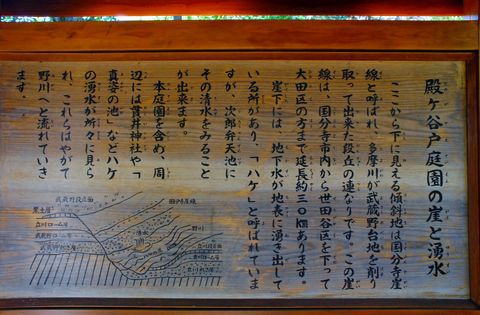 殿ヶ谷戸庭園の崖と湧水
ここから下に見える傾斜地は国分寺崖
線と呼ばれ、多摩川が武蔵野台地を削り
取って出来た段丘の連なりです。この崖
線は、国分寺市内から世田谷区を下って
大田区の方まで延長約三〇㎞あります。
崖下には、地下水が地表に湧き出して
いる所があり、「ハケ」と呼ばれていま
すが、次郎弁天池に
その清水をみること
が出来ます。
本庭園を含め、周
辺には貫井神社や「
真姿の池」などハケ
の湧水が所々に見ら
れ、これらはやがて
野川へと流れていき
ます。
武蔵野段丘面
国分寺崖線
黒土層
立川ローム層
武蔵野ローム層
武蔵野れき層
湧水
野川
立川段丘面
立川ローム層
立川れき層